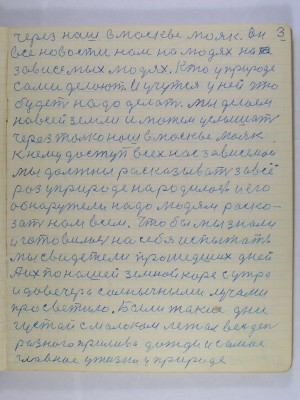 3
через наш в москве маяк. Он
все новости нам на людях на
зависемых людях. Кто у природе
сами делают. И учутся у ней это
будет надо делат. мы делаем
на всей земли и можем услышат
через только наш в москве маяк
к нему доступ всех нас зависемое
мы должны рассказыват за всё
раз у природе народилось и его
обнаружели надо людям раско-
зат нам всем. Что бы мы знали
и готовились на себя испытать
мы свидетели прошедших дней
А их по нашей земной коре с утра
и до вечера солнычными лучами
просветило. Были такие дни
густой с малоком летал везде
разного прилива дожди и самае
главное у жизни у природе